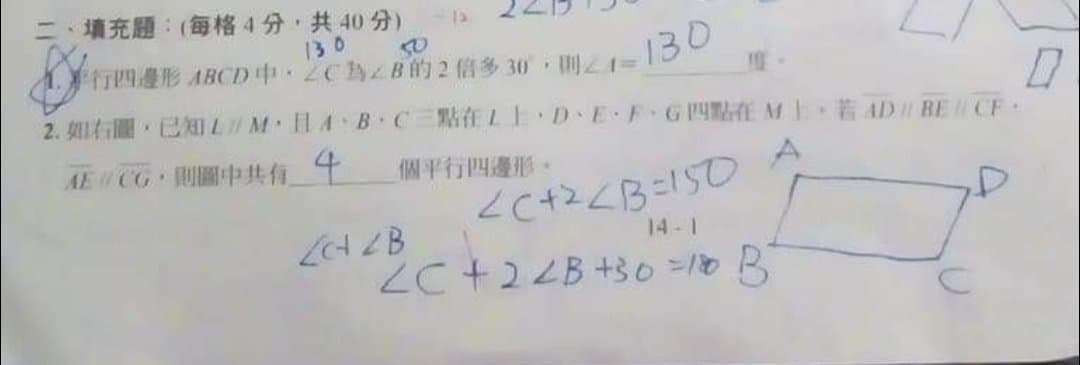 二、填充題：(每格 4 分，共 40 分)
130 50
1. 平行四邊形 ABCD 中，∠C 為∠B 的 2 倍多 30°，則∠A= 130 度。
2. 如右圖，已知 L // M，且 A、B、C 三點在 L 上，D、E、F、G 四點在 M 上，若 AD // BE // CF，
AE // CG，則圖中共有 4 個平行四邊形。
A
D
∠C+2∠B=150
14 - 1
∠C+∠B
∠C+2∠B+30=180
B
C